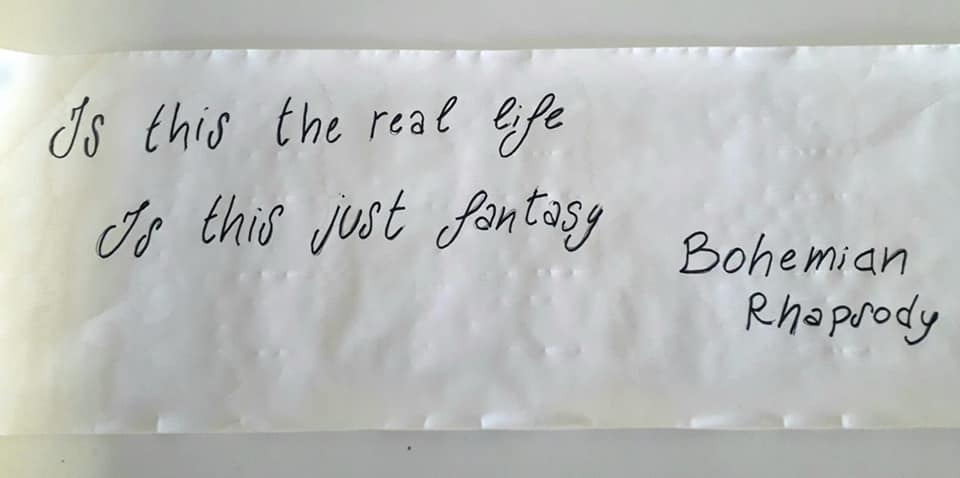 Is this the real life
Is this just fantasy
Bohemian
Rhapsody